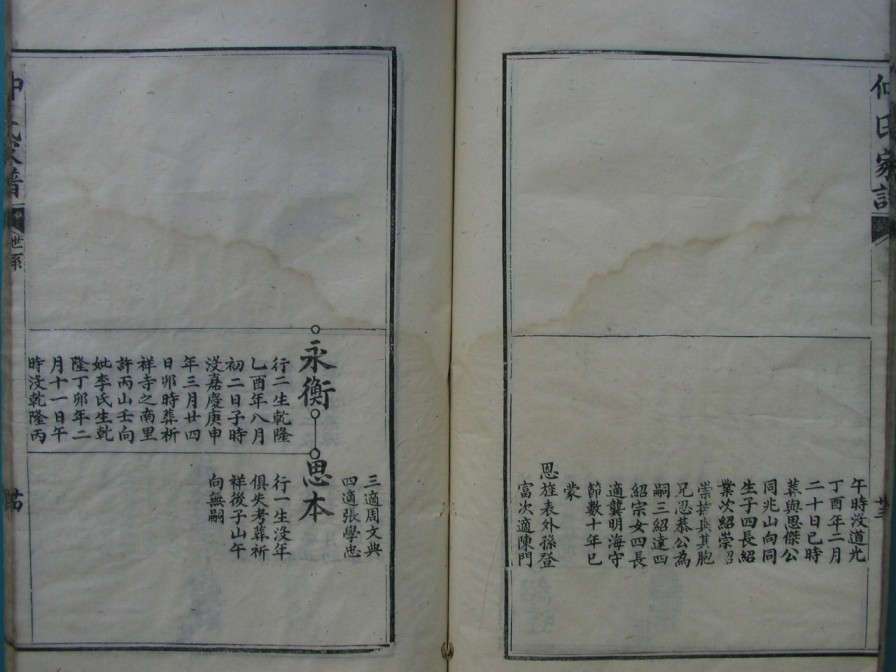 仲氏家譜
午時沒道光
丁酉年二月
二十日巳時
葬與思傑公
同兆山向同
生子四長紹
業次紹崇紹
崇與其胞
兄思恭公為
嗣三紹達四
紹宗女四長
適龔明海守
節數十年已
蒙
恩旌表外孫登
富次適陳門
三適周文典
四適張學忠
永衡
行二生乾隆
乙酉年八月
初二日子時
沒嘉慶庚申
年三月廿四
日卯時葬祈
祥寺之南里
許丙山壬向
妣李氏生乾
隆丁卯年二
月十一日午
時沒乾隆丙
思本
行一生沒年
俱失考葬祈
祥後子山午
向無嗣
仲氏家譜
世系